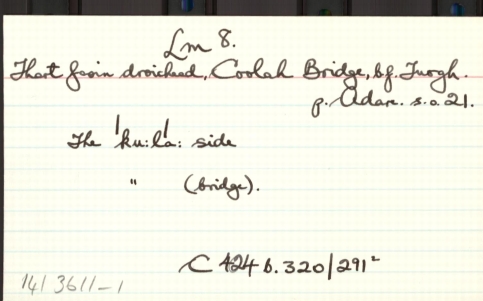 Lm 8.
Thart faoin droichead, Coolah Bridge, bf. Turgh.
p. Adare. s.o. 21.
The ˈku:ˈla: side
" (bridge).
C 424 b. 320/291²
1413611-1